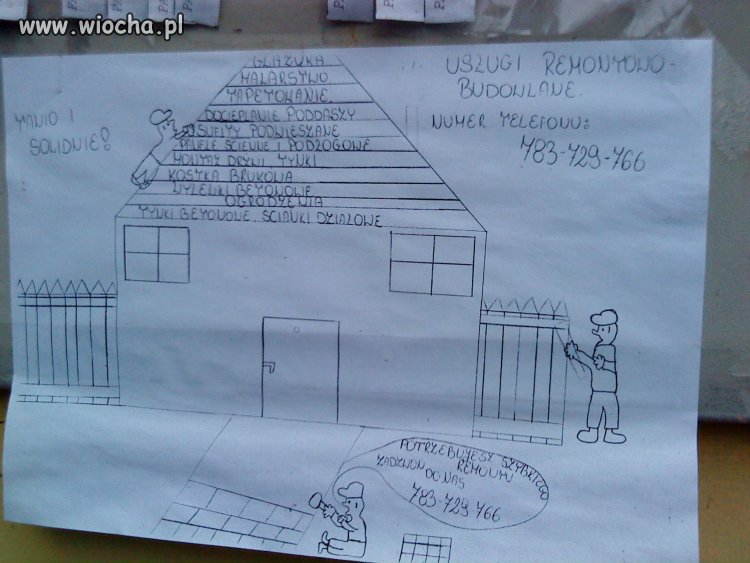 www.wiocha.pl
USŁUGI REMONTOWO-
BUDOWLANE.
NUMER TELEFONU:
783-729-766
TANIO I
SOLIDNIE!
GLAZURA
MALARSTWO
TAPETOWANIE
DOCIEPLANIE PODDASZY
SUFITY PODWIESZANE
PANELE ŚCIENNE I PODŁOGOWE
MONTAŻ DRZWI, TYNKI
KOSTKA BRUKOWA
WYLEWKI BETONOWE
OGRODZENIA
TYNKI BETONOWE. ŚCIANKI DZIAŁOWE
POTRZEBUJESZ SZYBKIEGO
REMONTU
ZADZWOŃ
DO NAS
783-729-766